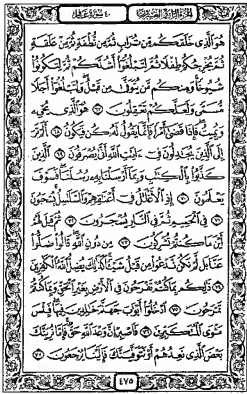 الجزء الرابع والعشرون ٤٠ سورة غافر
هُوَ ٱلَّذِى خَلَقَكُم مِّن تُرَابٍ ثُمَّ مِن نُّطْفَةٍ ثُمَّ مِنْ عَلَقَةٍ
ثُمَّ يُخْرِجُكُمْ طِفْلًا ثُمَّ لِتَبْلُغُوٓا۟ أَشُدَّكُمْ ثُمَّ لِتَكُونُوا۟
شُيُوخًا ۚ وَمِنكُم مَّن يُتَوَفَّىٰ مِن قَبْلُ ۖ وَلِتَبْلُغُوٓا۟ أَجَلًا
مُّسَمًّى وَلَعَلَّكُمْ تَعْقِلُونَ ٦٧ هُوَ ٱلَّذِى يُحْىِۦ
وَيُمِيتُ ۖ فَإِذَا قَضَىٰٓ أَمْرًا فَإِنَّمَا يَقُولُ لَهُۥ كُن فَيَكُونُ ٦٨ أَلَمْ تَرَ
إِلَى ٱلَّذِينَ يُجَٰدِلُونَ فِىٓ ءَايَٰتِ ٱللَّهِ أَنَّىٰ يُصْرَفُونَ ٦٩ ٱلَّذِينَ
كَذَّبُوا۟ بِٱلْكِتَٰبِ وَبِمَآ أَرْسَلْنَا بِهِۦ رُسُلَنَا ۖ فَسَوْفَ
يَعْلَمُونَ ٧٠ إِذِ ٱلْأَغْلَٰلُ فِىٓ أَعْنَٰقِهِمْ وَٱلسَّلَٰسِلُ يُسْحَبُونَ
٧١ فِى ٱلْحَمِيمِ ثُمَّ فِى ٱلنَّارِ يُسْجَرُونَ ٧٢ ثُمَّ قِيلَ لَهُمْ
أَيْنَ مَا كُنتُمْ تُشْرِكُونَ ٧٣ مِن دُونِ ٱللَّهِ ۖ قَالُوا۟ ضَلُّوا۟
عَنَّا بَل لَّمْ نَكُن نَّدْعُوا۟ مِن قَبْلُ شَيْـًٔا ۚ كَذَٰلِكَ يُضِلُّ ٱللَّهُ ٱلْكَٰفِرِينَ
٧٤ ذَٰلِكُم بِمَا كُنتُمْ تَفْرَحُونَ فِى ٱلْأَرْضِ بِغَيْرِ ٱلْحَقِّ وَبِمَا كُنتُمْ
تَمْرَحُونَ ٧٥ ٱدْخُلُوٓا۟ أَبْوَٰبَ جَهَنَّمَ خَٰلِدِينَ فِيهَا ۖ فَبِئْسَ
مَثْوَى ٱلْمُتَكَبِّرِينَ ٧٦ فَٱصْبِرْ إِنَّ وَعْدَ ٱللَّهِ حَقٌّ ۚ فَإِمَّا نُرِيَنَّكَ
بَعْضَ ٱلَّذِى نَعِدُهُمْ أَوْ نَتَوَفَّيَنَّكَ فَإِلَيْنَا يُرْجَعُونَ ٧٧
٤٧٥